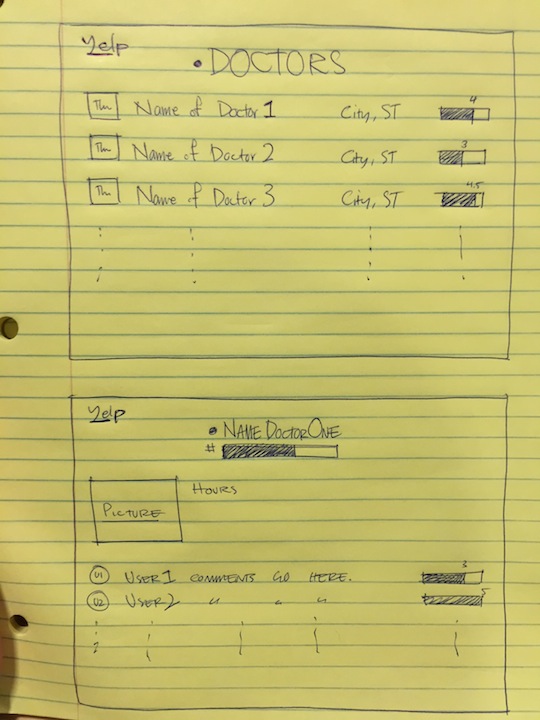 Yelp
• DOCTORS
Thu Name of Doctor 1 City, ST 4
Thu Name of Doctor 2 City, ST 3
Thu Name of Doctor 3 City, ST 4.5
Yelp
• NAME DOCTOR ONE
#
HOURS
PICTURE
U1 USER1 COMMENTS GO HERE. 3
U2 USER2 " " " 5